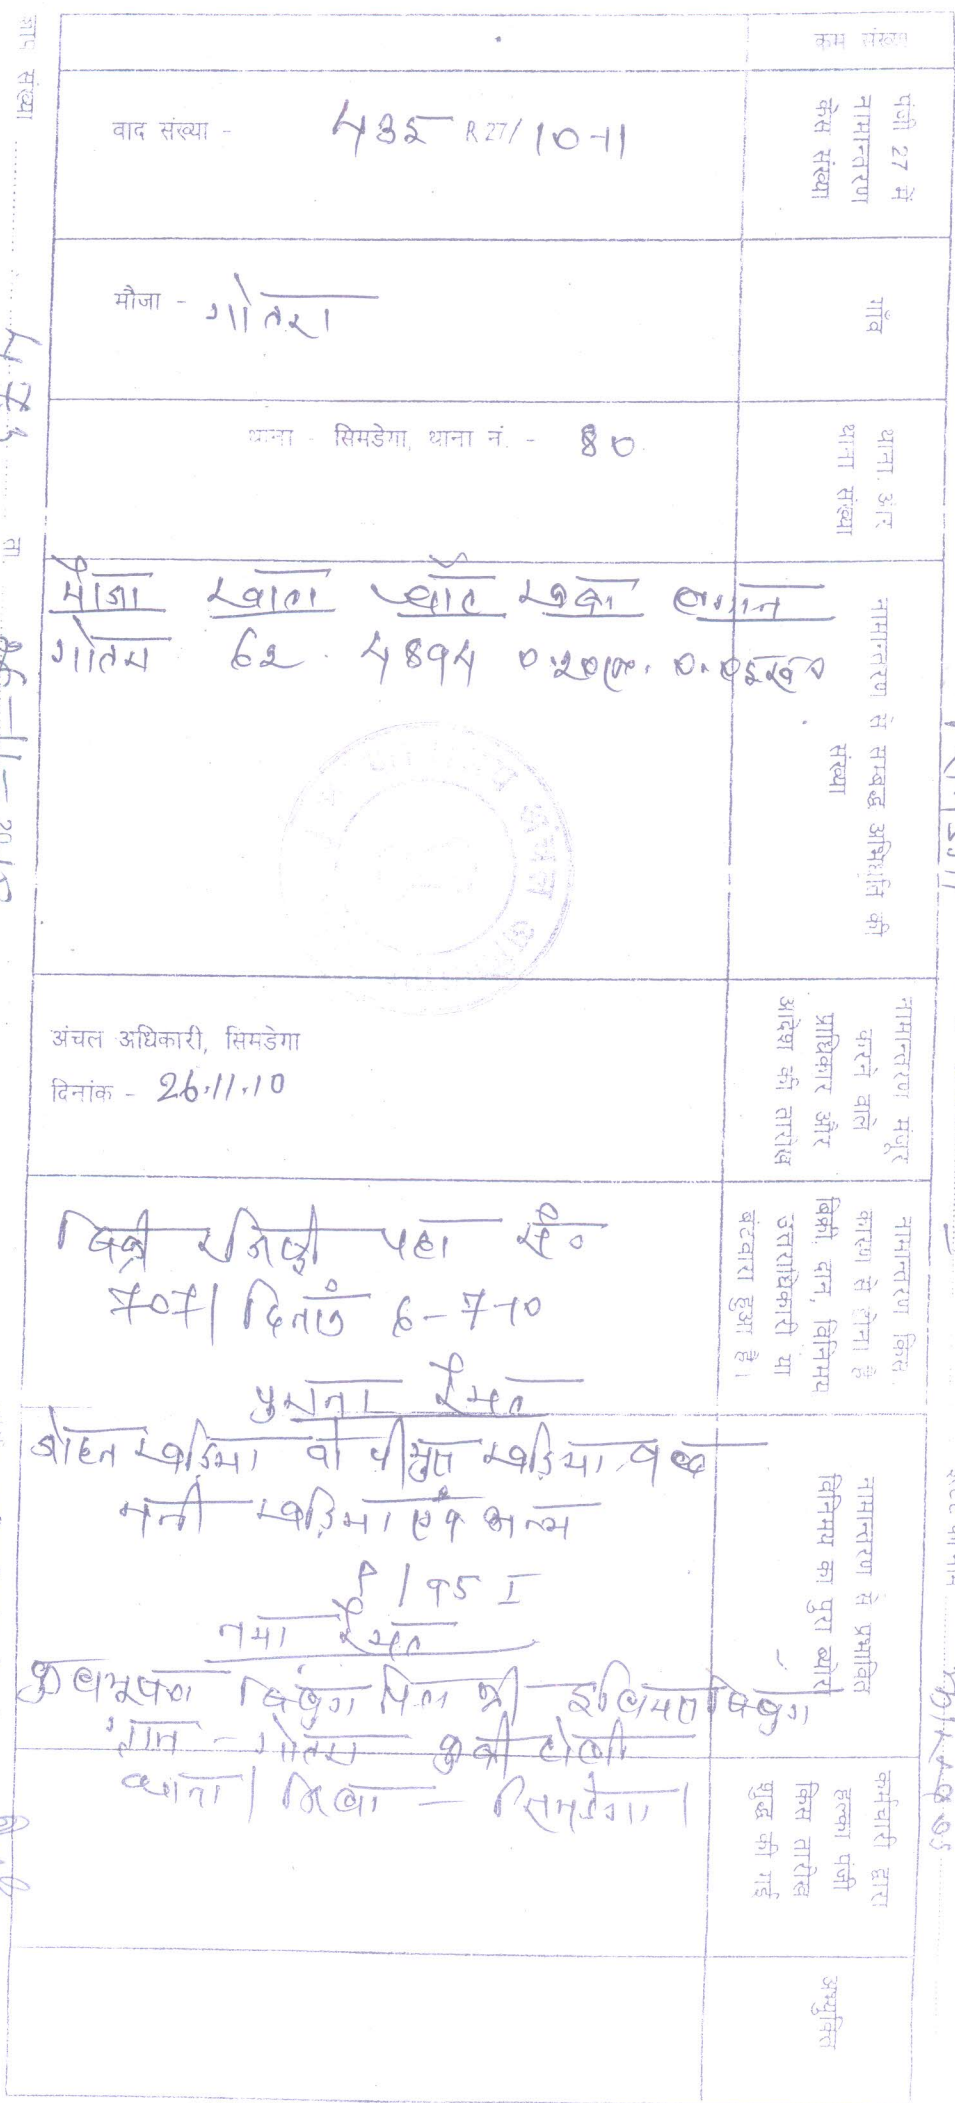 कम संख्या
पंजी 27 में
नामान्तरण
केस संख्या
वाद संख्या - 435 R 27/10-11
गाँव
मौजा - गोतरा
थाना और
थाना संख्या
थाना - सिमडेगा, थाना नं. - 80
नामान्तरण से सम्बद्ध अभिधृति की
संख्या
मौजा खाता प्लॉट रकबा लगान
गोतरा 62 4894 0.20
नामान्तरण मंजूर
करने वाले
प्राधिकार और
आदेश की तारीख
अंचल अधिकारी, सिमडेगा
दिनांक - 26.11.10
नामान्तरण किस
कारण से होना है
बिक्री, दान, विनिमय
उत्तराधिकारी या
बंटवारा हुआ है।
बिक्री रजिस्ट्री पट्टा सं०
707/ दिनांक 6-7-10
नामान्तरण से प्रभावित
विनिमय का पुरा ब्योरा
पुराना रैयत
खड़िया वो खड़िया
खड़िया एवं अन्य
P/95 I
नया रैयत
कुलभूषण डुंगडुंग पिता श्री
ग्राम - गोतरा टोली
थाना/जिला - सिमडेगा।
कर्मचारी द्वारा
हल्का पंजी
किस तारीख
शुद्ध की गई
अभ्युक्ति
ज्ञाप संख्या 474 ता. 26-11-2010